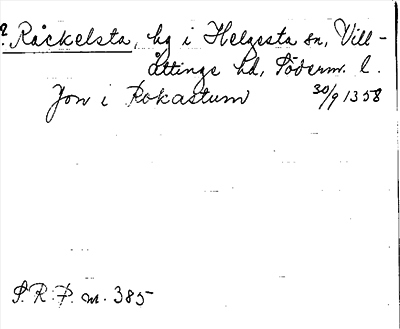 ? Råckelsta, hg i Helgesta sn, Vill-
åttinge hd, Söderm. l.
Jon i Rokastum 30/9 1358
S.R.P. nr. 385